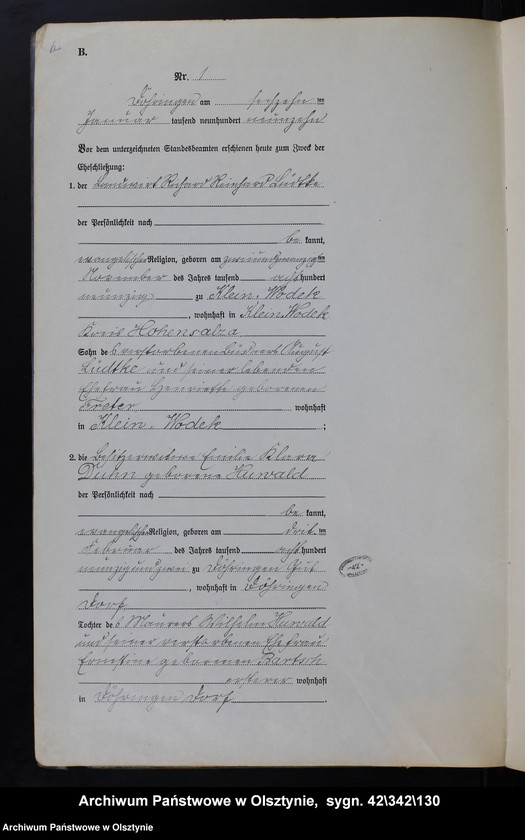 B.
Nr. 1
Döhringen am sechzehn ten
Januar tausend neunhundert neunzehn
Vor dem unterzeichneten Standesbeamten erschienen heute zum Zweck der
Eheschließung:
1. der Landwirt Richard Reinhard Lüdtke
der Persönlichkeit nach
be kannt,
evangelischer Religion, geboren am zweiundzwanzigsten
November des Jahres tausend acht hundert
neunzig zu Klein-Wodek
, wohnhaft in Klein-Wodek
Kreis Hohensalza
Sohn des verstorbenen August
Lüdtke und seiner lebenden
Ehefrau Henriette geborenen
Freter wohnhaft
in Klein-Wodek ;
2. die Besitzerwitwe Emilie Klara
Duhn geborene Huwald
der Persönlichkeit nach
be kannt,
evangelischer Religion, geboren am drit ten
Februar des Jahres tausend acht hundert
neunzigundzwei zu Döhringen Gut
, wohnhaft in Döhringen
Dorf
Tochter des Maurers Wilhelm Huwald
und seiner verstorbenen Ehefrau
Ernstine geborenen Bartsch
ersterer wohnhaft
in Döhringen Dorf .
Archiwum Państwowe w Olsztynie, sygn. 42\342\130
Archiwum Państwowe w Olsztynie